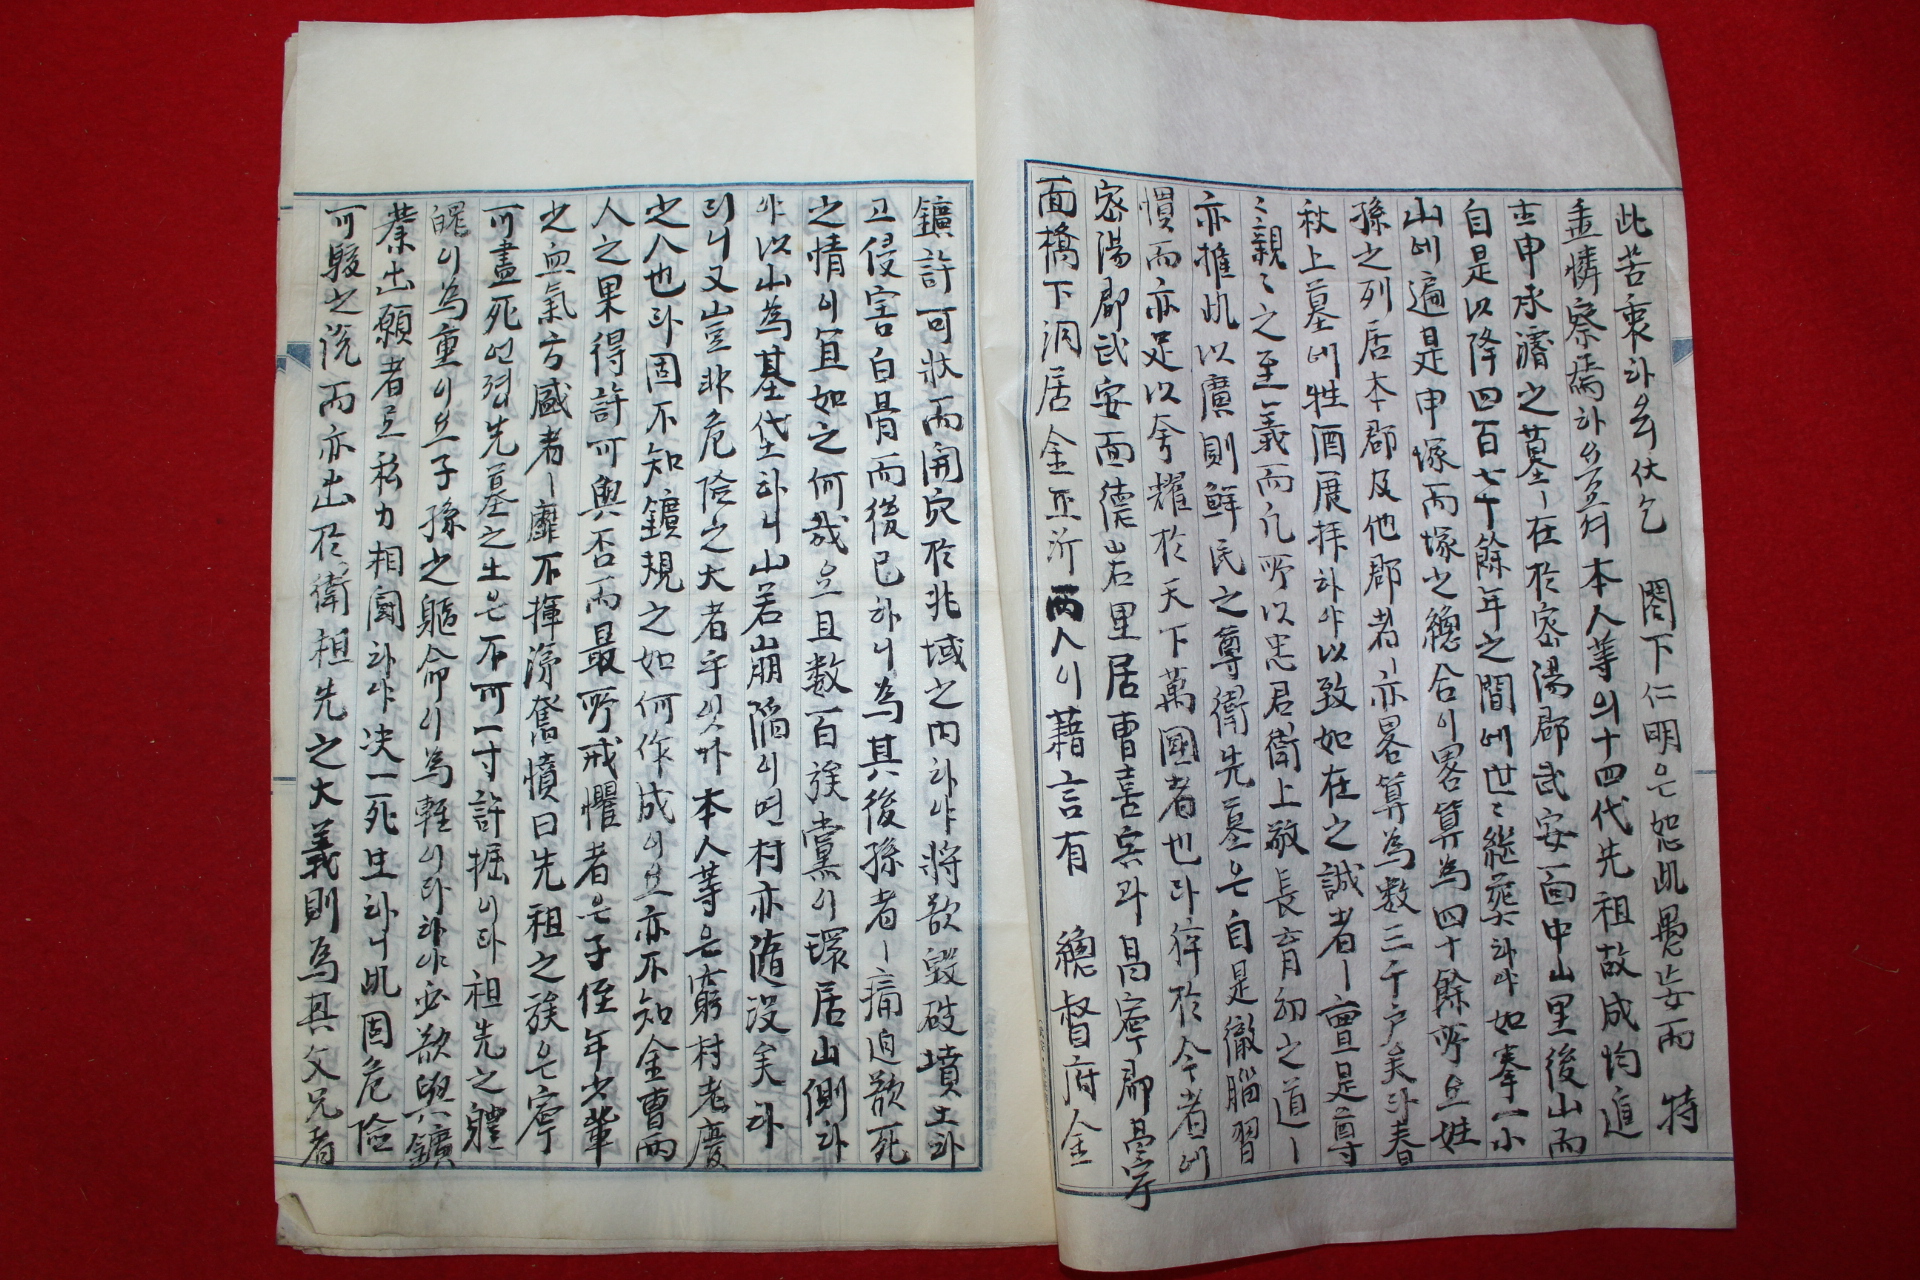 此苦衷하쇼셔伏乞 閤下仁明은恕此愚妄而 特
垂憐察焉하쇼셔本人等의十四代先祖故成均進
士申承濬之墓ㅣ在於密陽郡武安面中山里後山而
自是以降四百七十餘年之間에世〻繼葬하야如拳一小
山에遍是申塚而塚之總合이畧算為四十餘所오姓
孫之列居本郡及他郡者ㅣ亦畧算為数三千戶矣라春
秋上墓에牲酒展拜하야以致如在之誠者ㅣ亶是尊
〻親〻之至義而凡所以忠君衛上敬長育幼之道ㅣ
亦推此以廣則鮮民之尊衛先墓은自是徹腦習
慣而亦足以夸耀於天下萬國者也라痒於今者에
密陽郡武安面德岩里居曹喜宾과昌寧郡昌寧
面橋下洞居金 沂兩人이藉言有 總督府金
鑛許可狀而開穴於兆域之内하야將欲毀破墳土하
고侵害白骨而後已하니為其後孫者ㅣ痛迫欲死
之情이宜如之何哉으且数百族黨이環居山側하
야以山為基代土하니山若崩陷이면村亦随没矣라
되니又豈非危險之大者乎잇가本人等은窮村老處
之人也라固不知鑛規之如何作成이오亦不知金曹兩
人之果得許可與否而最所戒懼者은子侄年少輩
之血氣方盛者ㅣ靡不揮涕奮憤曰先祖之族은寧
可盡死언졍先墓之土은不可一寸許掘이라祖先之體
魄이為重이으子孫之軀命이為輕이라하야必欲與鑛
業出願者로私力相鬪하야决一死生하니此固危險
可駭之説而亦出於衛祖先之大義則為其父兄者